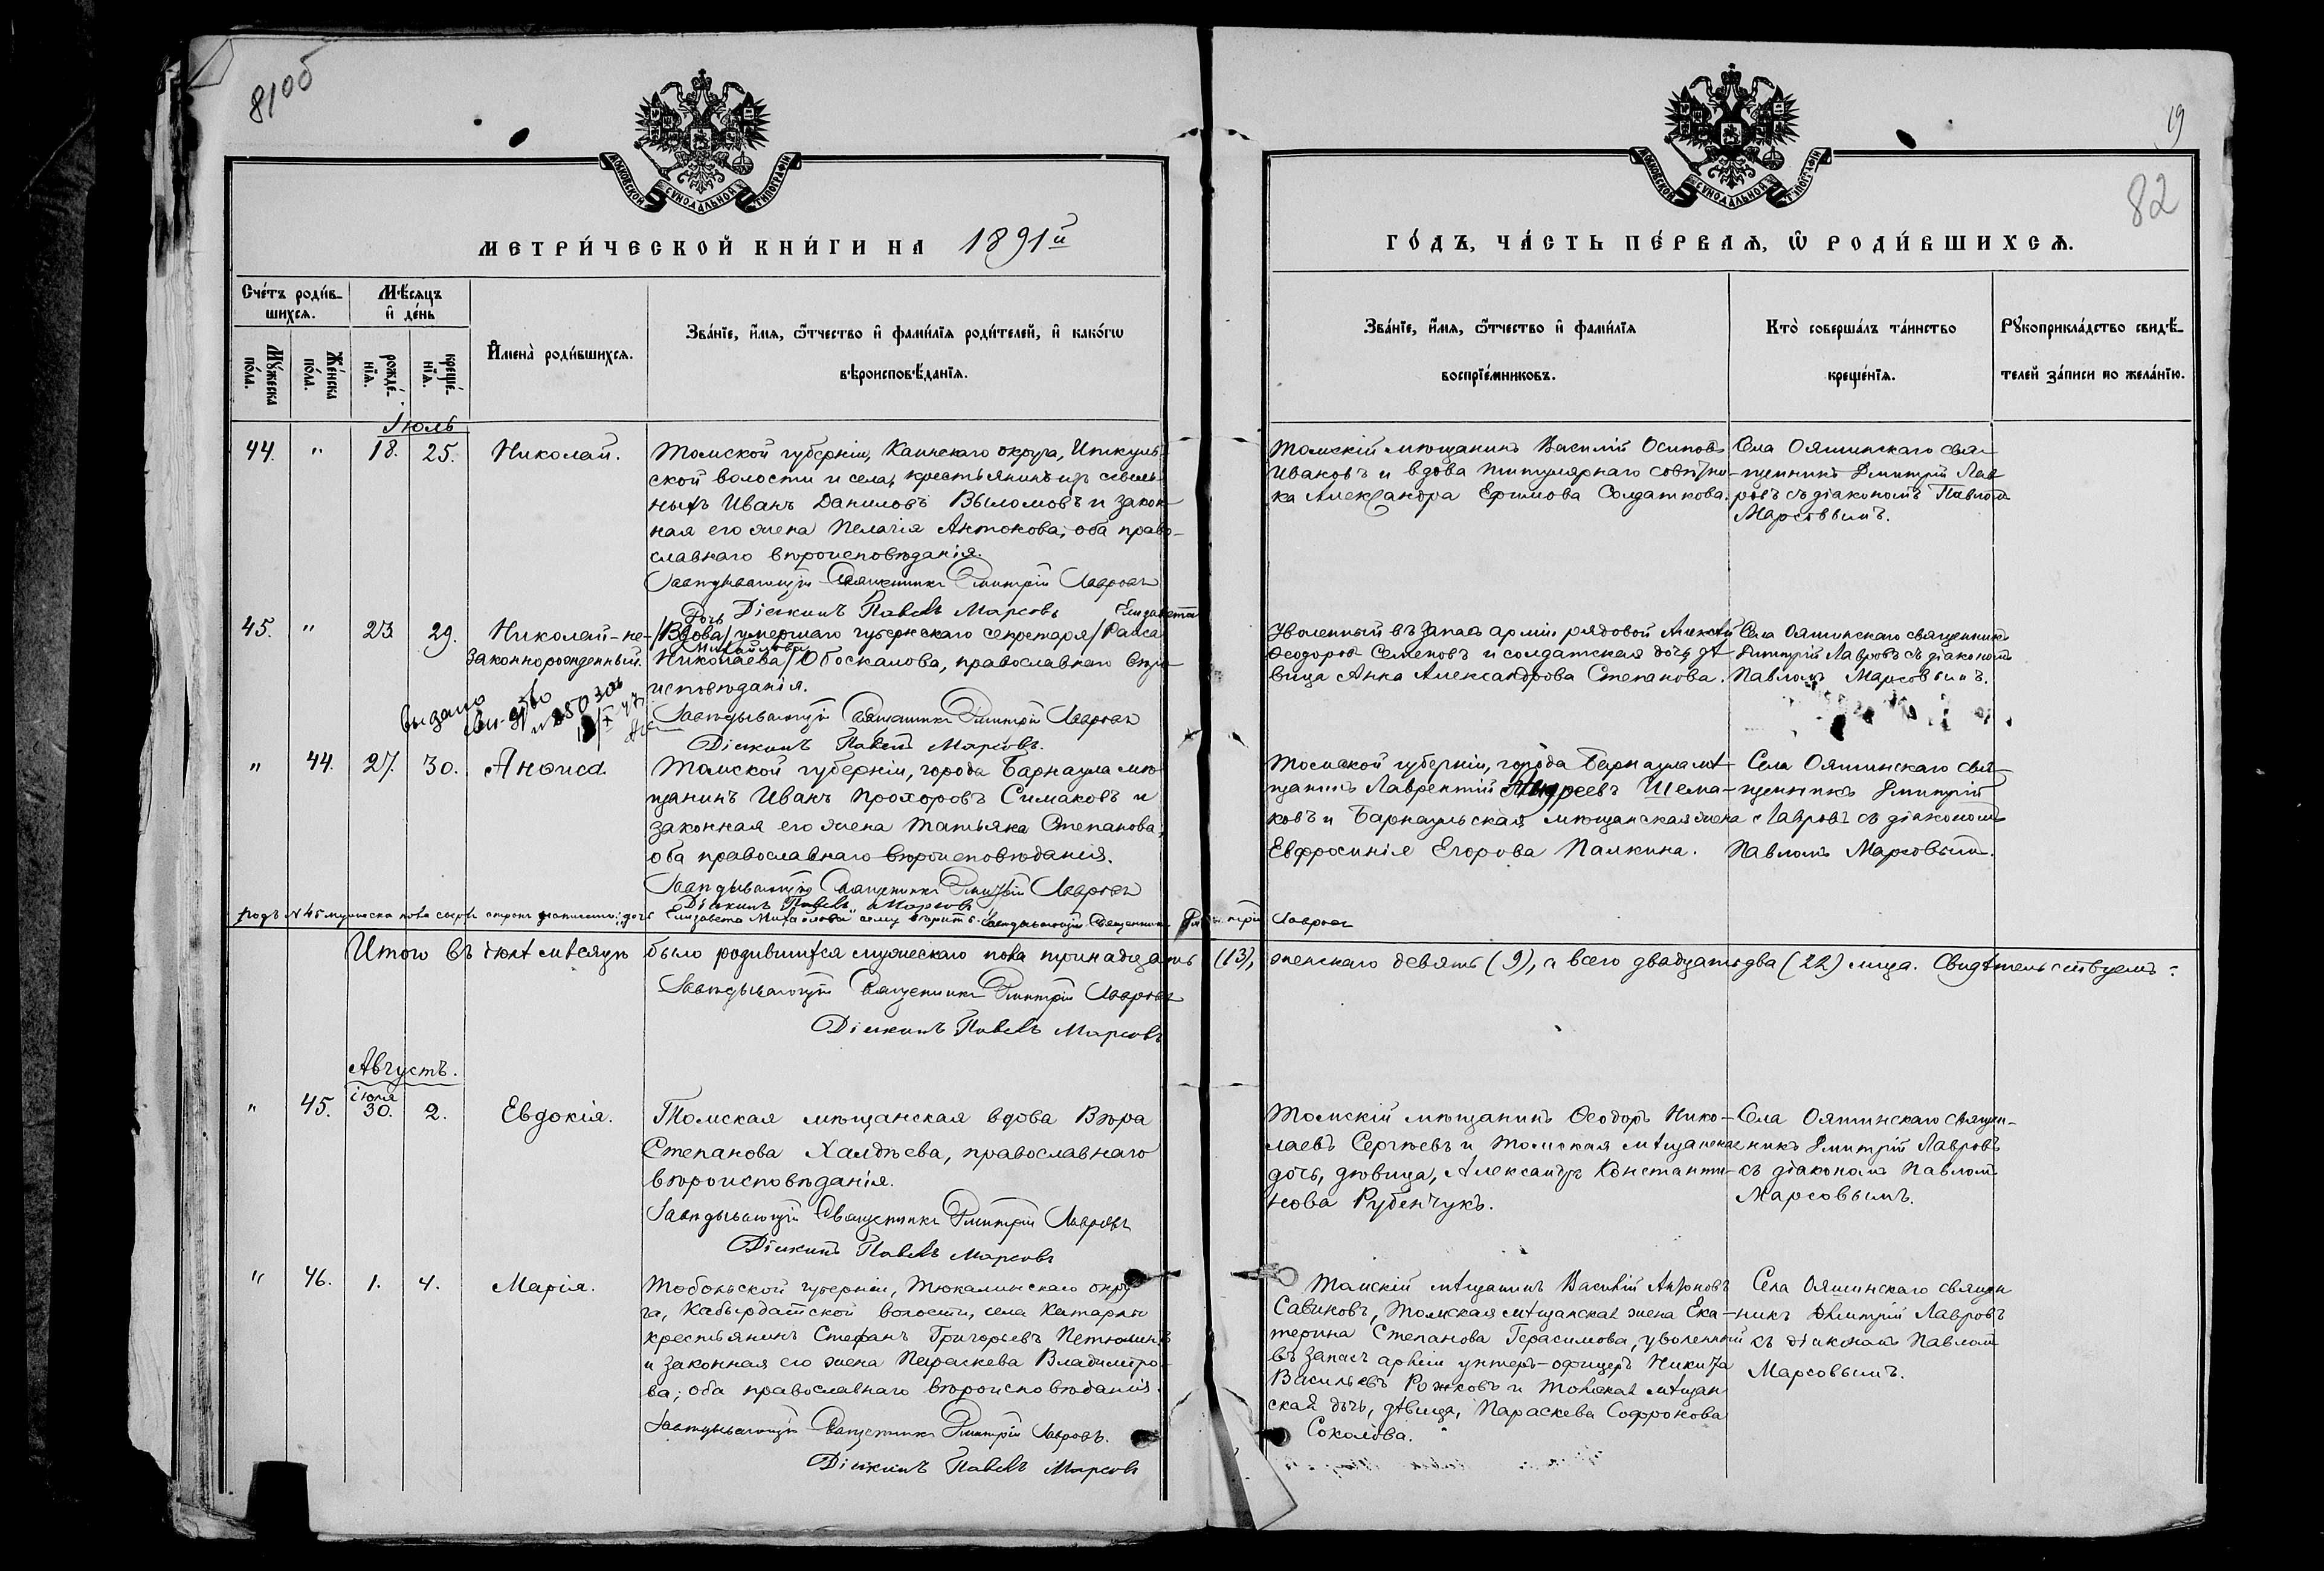 81об
19
82
МОСКОВСКОЙ СѴНОДАЛЬНОЙ ТИПОГРАФІИ
МОСКОВСКОЙ СѴНОДАЛЬНОЙ ТИПОГРАФІИ
МЕТРИ́ЧЕСКОЙ КНИ́ГИ НА 1891й
ГО́ДЪ, ЧА́СТЬ ПЕ́РВАѦ, Ѡ҆ РОДИ́ВШИХСѦ.
Сче́тъ роди́в-
шихсѧ.
Мѣ́сѧцъ
и҆ де́нь
Мꙋ́жеска
по́ла.
Же́нска
по́ла.
рожде́-
нїѧ.
креще́-
нїѧ.
И҆мена̀ роди́вшихсѧ.
Зва́нїе, и҆́мѧ, ѻ҆́тчество и҆ фами́лїѧ роди́телей, и҆ како́гѡ
вѣроисповѣ́данїѧ.
Зва́нїе, и҆́мѧ, ѻ҆́тчество и҆ фами́лїѧ
воспрїе́мниковъ.
Кто̀ соверша́лъ та́инство
креще́нїѧ.
Рꙋкоприкла́дство свидѣ́-
телей за́писи по жела́нїю.
Іюль
44. " 18. 25. Николай.
Томской губерніи, Каинскаго округа, Иткуль-
ской волости и села, крестьянинъ изъ ссыль-
ныхъ Иванъ Даниловъ Выломовъ и закон-
ная его жена Пелагія Антонова; оба право-
славнаго вѣроисповѣданія.
Завѣдывающій Священникъ Димитрій Лавровъ
Діаконъ Павелъ Марсовъ
Томскій мѣщанинъ Василій Осиповъ
Ивановъ и вдова титулярнаго совѣтни-
ка Александра Ефимова Солдаткова.
Села Ояшинскаго свя-
щенникъ Димитрій Лав-
ровъ съ діакономъ Павломъ
Марсовымъ.
45. " 23. 29. Николай-не-
законнорожденный.
Дочь Елизавета
/Вдова/ умершаго губернскаго секретаря /Раиса
Михайлова
Николаева/ Обоскалова, православнаго вѣро-
исповѣданія.
Завѣдывающій Священникъ Димитрій Лавровъ
Діаконъ Павелъ Марсовъ.
выдано
Уволенный въ запасъ арміи рядовой Алексѣй
Ѳеодоровъ Семеновъ и солдатская дочь дѣ-
вица Анна Александрова Степанова.
Села Ояшинскаго священникъ
Димитрій Лавровъ съ діакономъ
Павломъ Марсовымъ.
" 44. 27. 30. Анѳиса.
Томской губерніи, города Барнаула мѣ-
щанинъ Иванъ Прохоровъ Симаковъ и
законная его жена Татьяна Степанова;
оба православнаго вѣроисповѣданія.
Завѣдывающій Священникъ Димитрій Лавровъ
Діаконъ Павелъ Марсовъ
Томской губерніи, города Барнаула мѣ-
щанинъ Лаврентій Андреевъ Шема-
ковъ и Барнаульская мѣщанская жена
Евфросинія Егорова Палкина.
Села Ояшинскаго свя-
щенникъ Димитрій
Лавровъ съ діакономъ
Павломъ Марсовымъ.
подъ № 45 мужеска пола сверхъ строкъ написанно: "дочь Елизавета Михайлова" сему вѣрить. Завѣдывающій Священникъ Димитрій Лавровъ
Итого въ іюлѣ мѣсяцѣ было родившихся мужескаго пола тринадцать (13), женскаго девять (9), а всего двадцать два (22) лица. Свидѣтельствуемъ:
Завѣдывающій Священникъ Димитрій Лавровъ
Діаконъ Павелъ Марсовъ
Августъ.
" 45. іюля 30. 2. Евдокія.
Томская мѣщанская вдова Вѣра
Степанова Халдѣева, православнаго
вѣроисповѣданія.
Завѣдывающій Священникъ Димитрій Лавровъ
Діаконъ Павелъ Марсовъ
Томскій мѣщанинъ Ѳеодоръ Нико-
лаевъ Сергѣевъ и Томская мѣщанская
дочь, дѣвица, Александра Константи-
нова Рубенчукъ.
Села Ояшинскаго священ-
никъ Димитрій Лавровъ
съ діакономъ Павломъ
Марсовымъ.
" 46. 1. 4. Марія.
Тобольской губерніи, Тюкалинскаго окру-
га, Кабырдатской волости, села Катарлы
крестьянинъ Стефанъ Григорьевъ Петюлинъ
и законная его жена Параскева Владимиро-
ва; оба православнаго вѣроисповѣданія.
Завѣдывающій Священникъ Димитрій Лавровъ.
Діаконъ Павелъ Марсовъ
Томскій мѣщанинъ Василій Антоновъ
Савиновъ, Томская мѣщанская жена Ека-
терина Степанова Герасимова, уволенный
въ запасъ арміи унтеръ-офицеръ Никита
Васильевъ Рожковъ и Томская мѣщан-
ская дочь, дѣвица, Параскева Софронова
Соколова.
Села Ояшинскаго священ-
никъ Димитрій Лавровъ
съ діакономъ Павломъ
Марсовымъ.